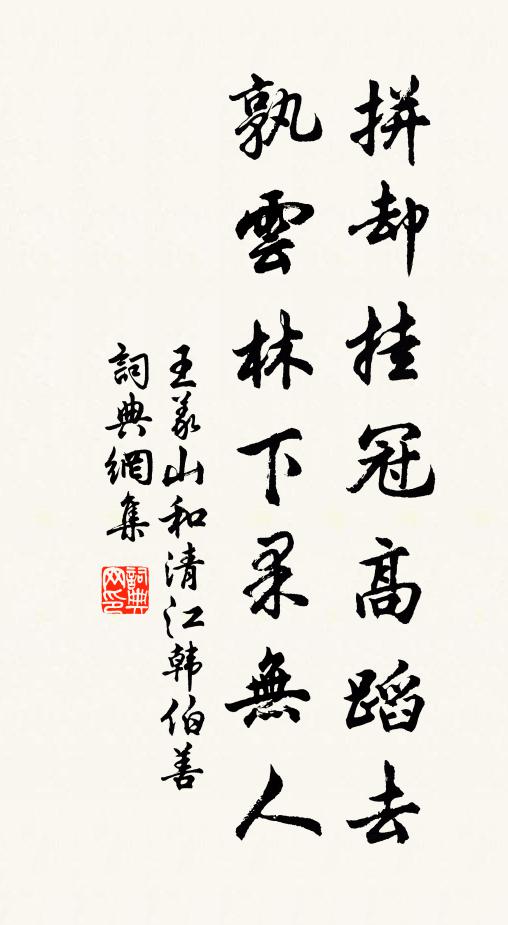 拼却挂冠高蹈去
孰雲林下果無人
王義山和清江韩伯善
詞典網集
詞典網印